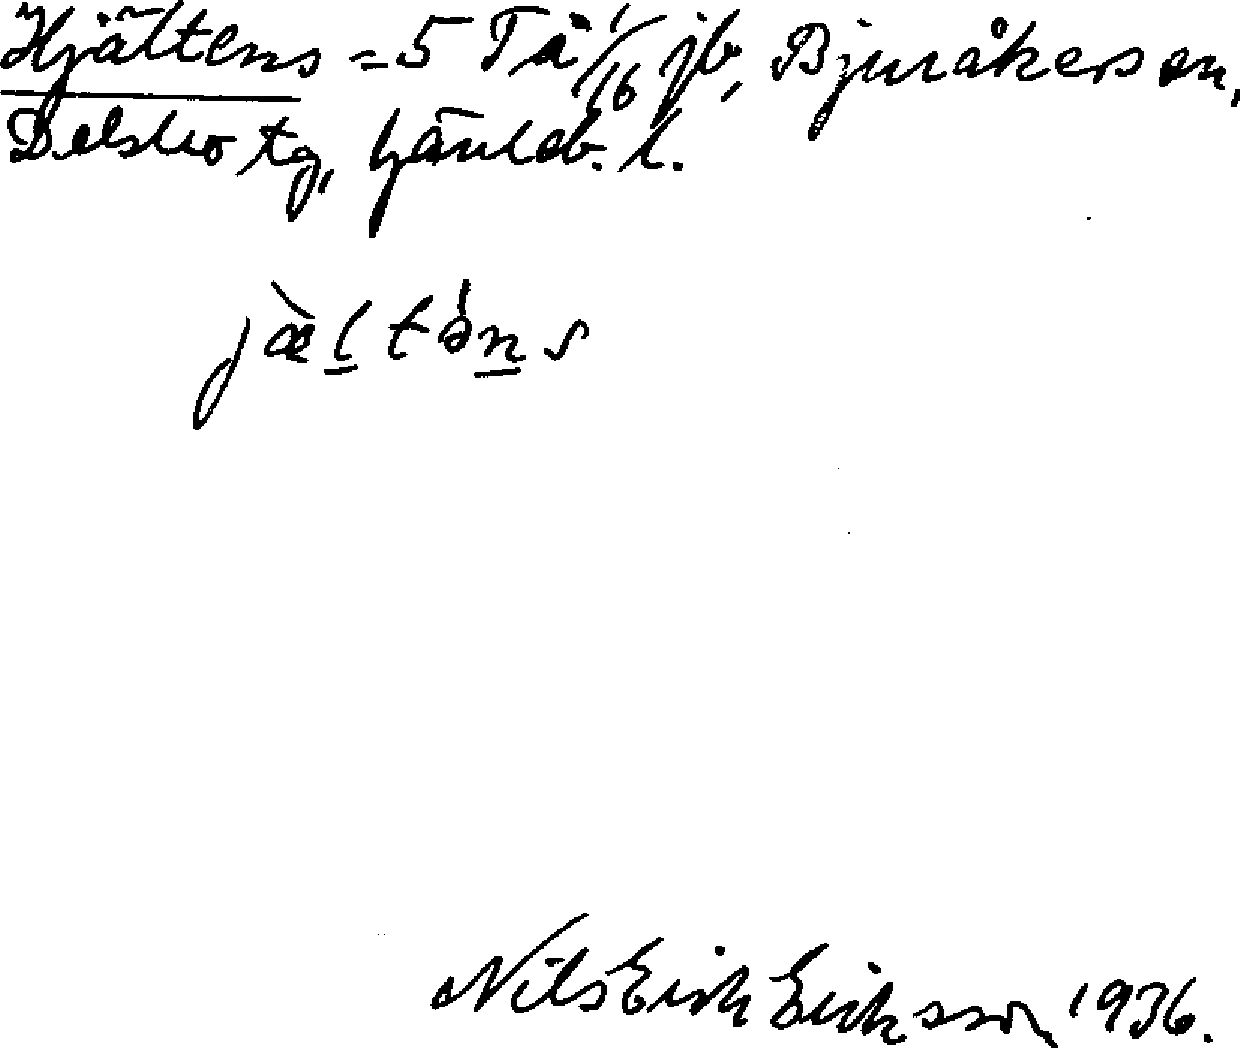 Hjältens = 5 Tå 1/16 jb, Bjuråkers sn,
Delsbo tg, Gävleb. l.
jæ̀ltə̀ns
Nils Erik Eriksson 1936.